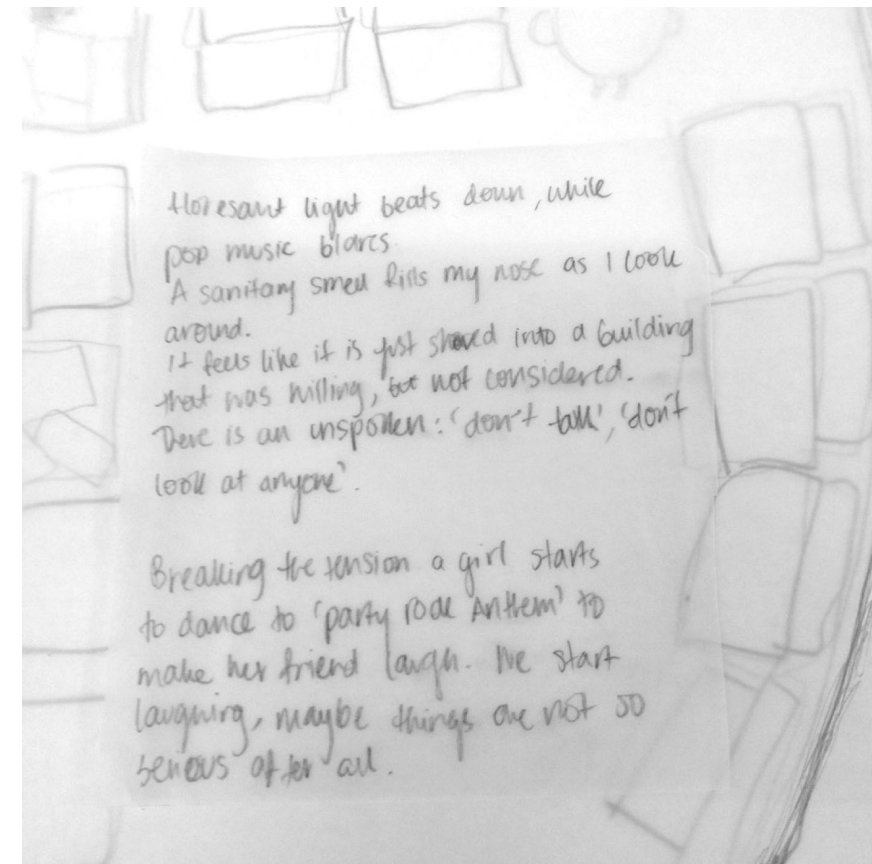 floresant light beats down, while
pop music blares.
A sanitary smell fills my nose as I look
around.
It feels like it is just shoved into a building
that was willing, but not considered.
There is an unspoken: 'don't talk', 'don't
look at anyone'.
Breaking the tension a girl starts
to dance to 'party rock Anthem' to
make her friend laugh. We start
laughing, maybe things are not so
serious after all.